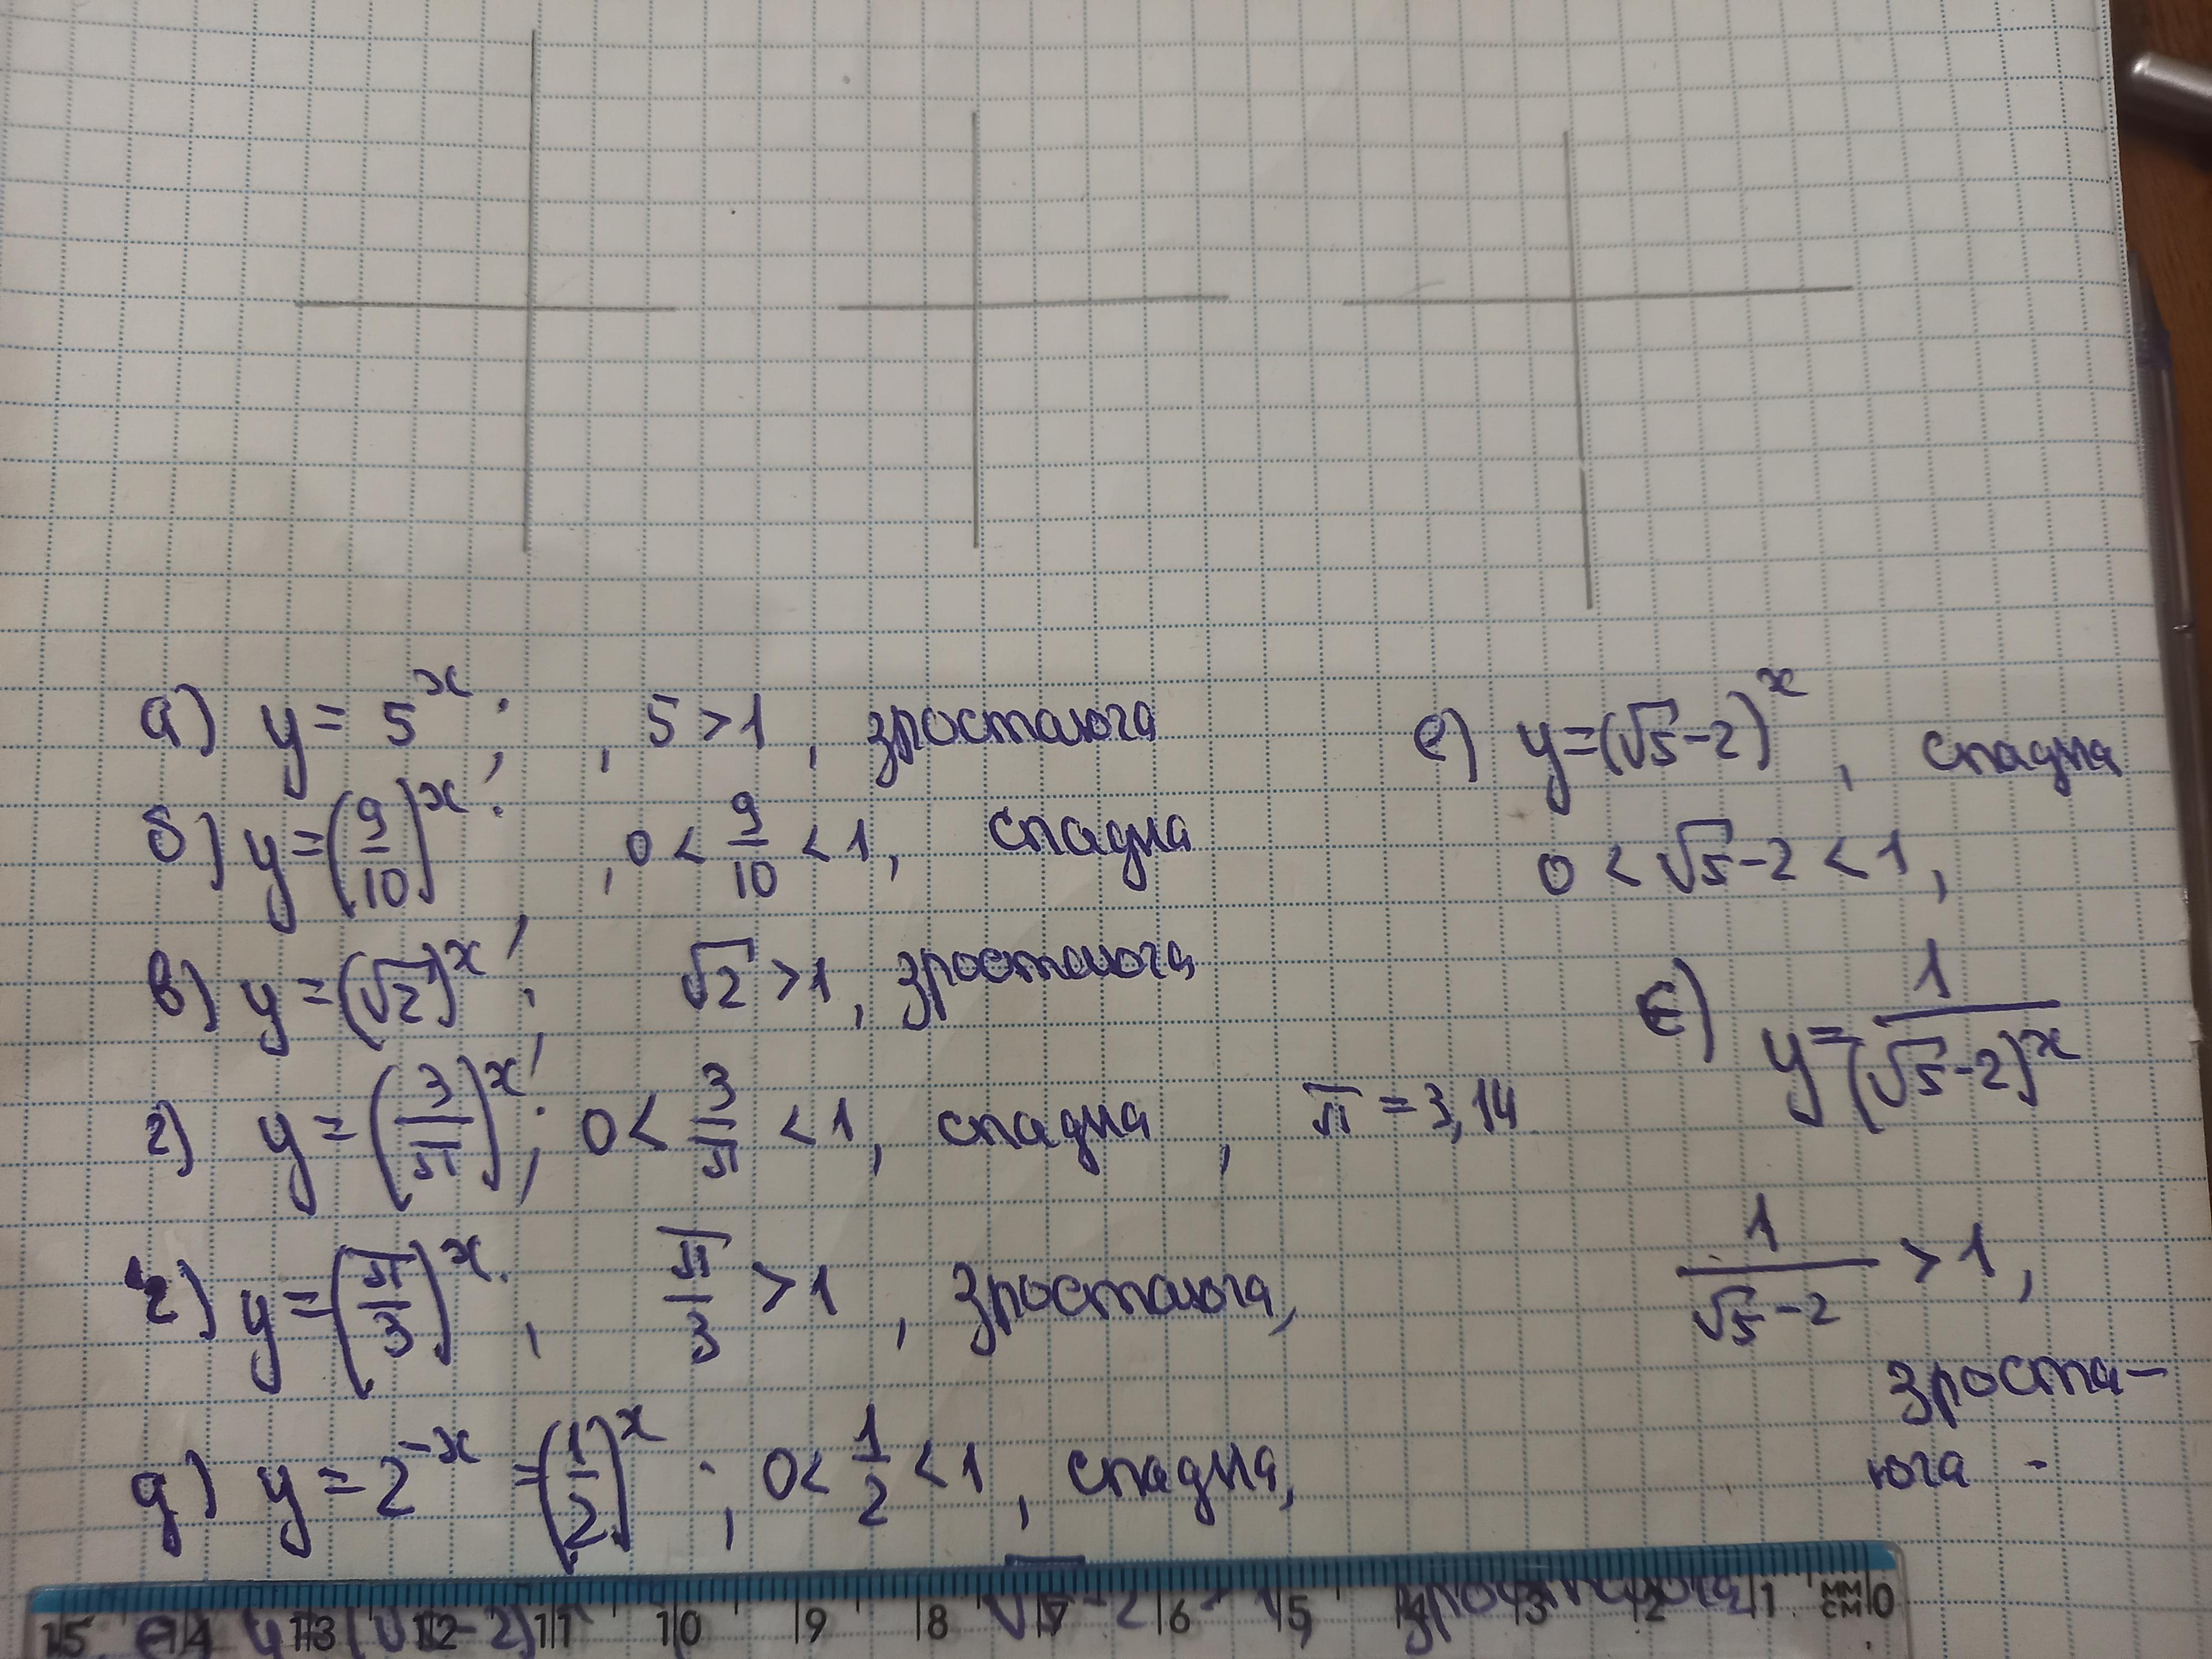 а) y = 5^x; , 5 > 1, зростаюча
б) y = (9/10)^x; , 0 < 9/10 < 1, спадна
в) y = (√2)^x; √2 > 1, зростаюча
г) y = (3/π)^x; 0 < 3/π < 1, спадна, π = 3,14
ґ) y = (π/3)^x; π/3 > 1, зростаюча,
д) y = 2^-x = (1/2)^x; 0 < 1/2 < 1, спадна,
е) y = (√5-2)^x, спадна
0 < √5-2 < 1,
є) y = 1/(√5-2)^x
1/(√5-2) > 1,
зроста-
юча -
15 14 13 12 11 10 9 8 7 6 5 4 3 2 1 0
MM
CM